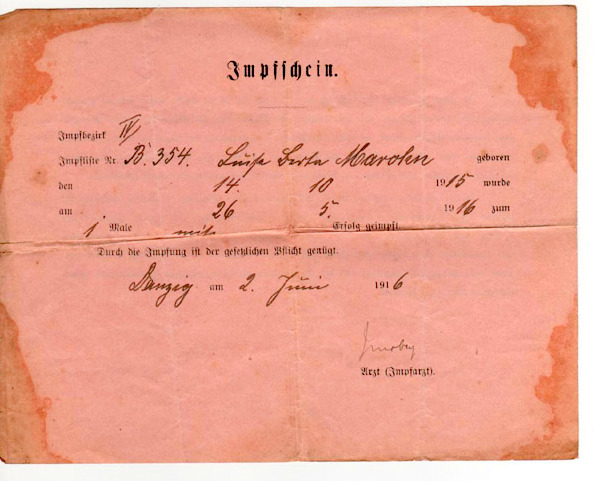 Impfschein.
Impfbezirk IV
Impfliste Nr. B. 354. Luise Berta Marohn geboren
den 14. 10 1915 wurde
am 26 5. 1916 zum
1 Male mit Erfolg geimpft
Durch die Impfung ist der gesetzlichen Pflicht genügt.
Danzig am 2. Juni 1916
Arzt (Impfarzt).